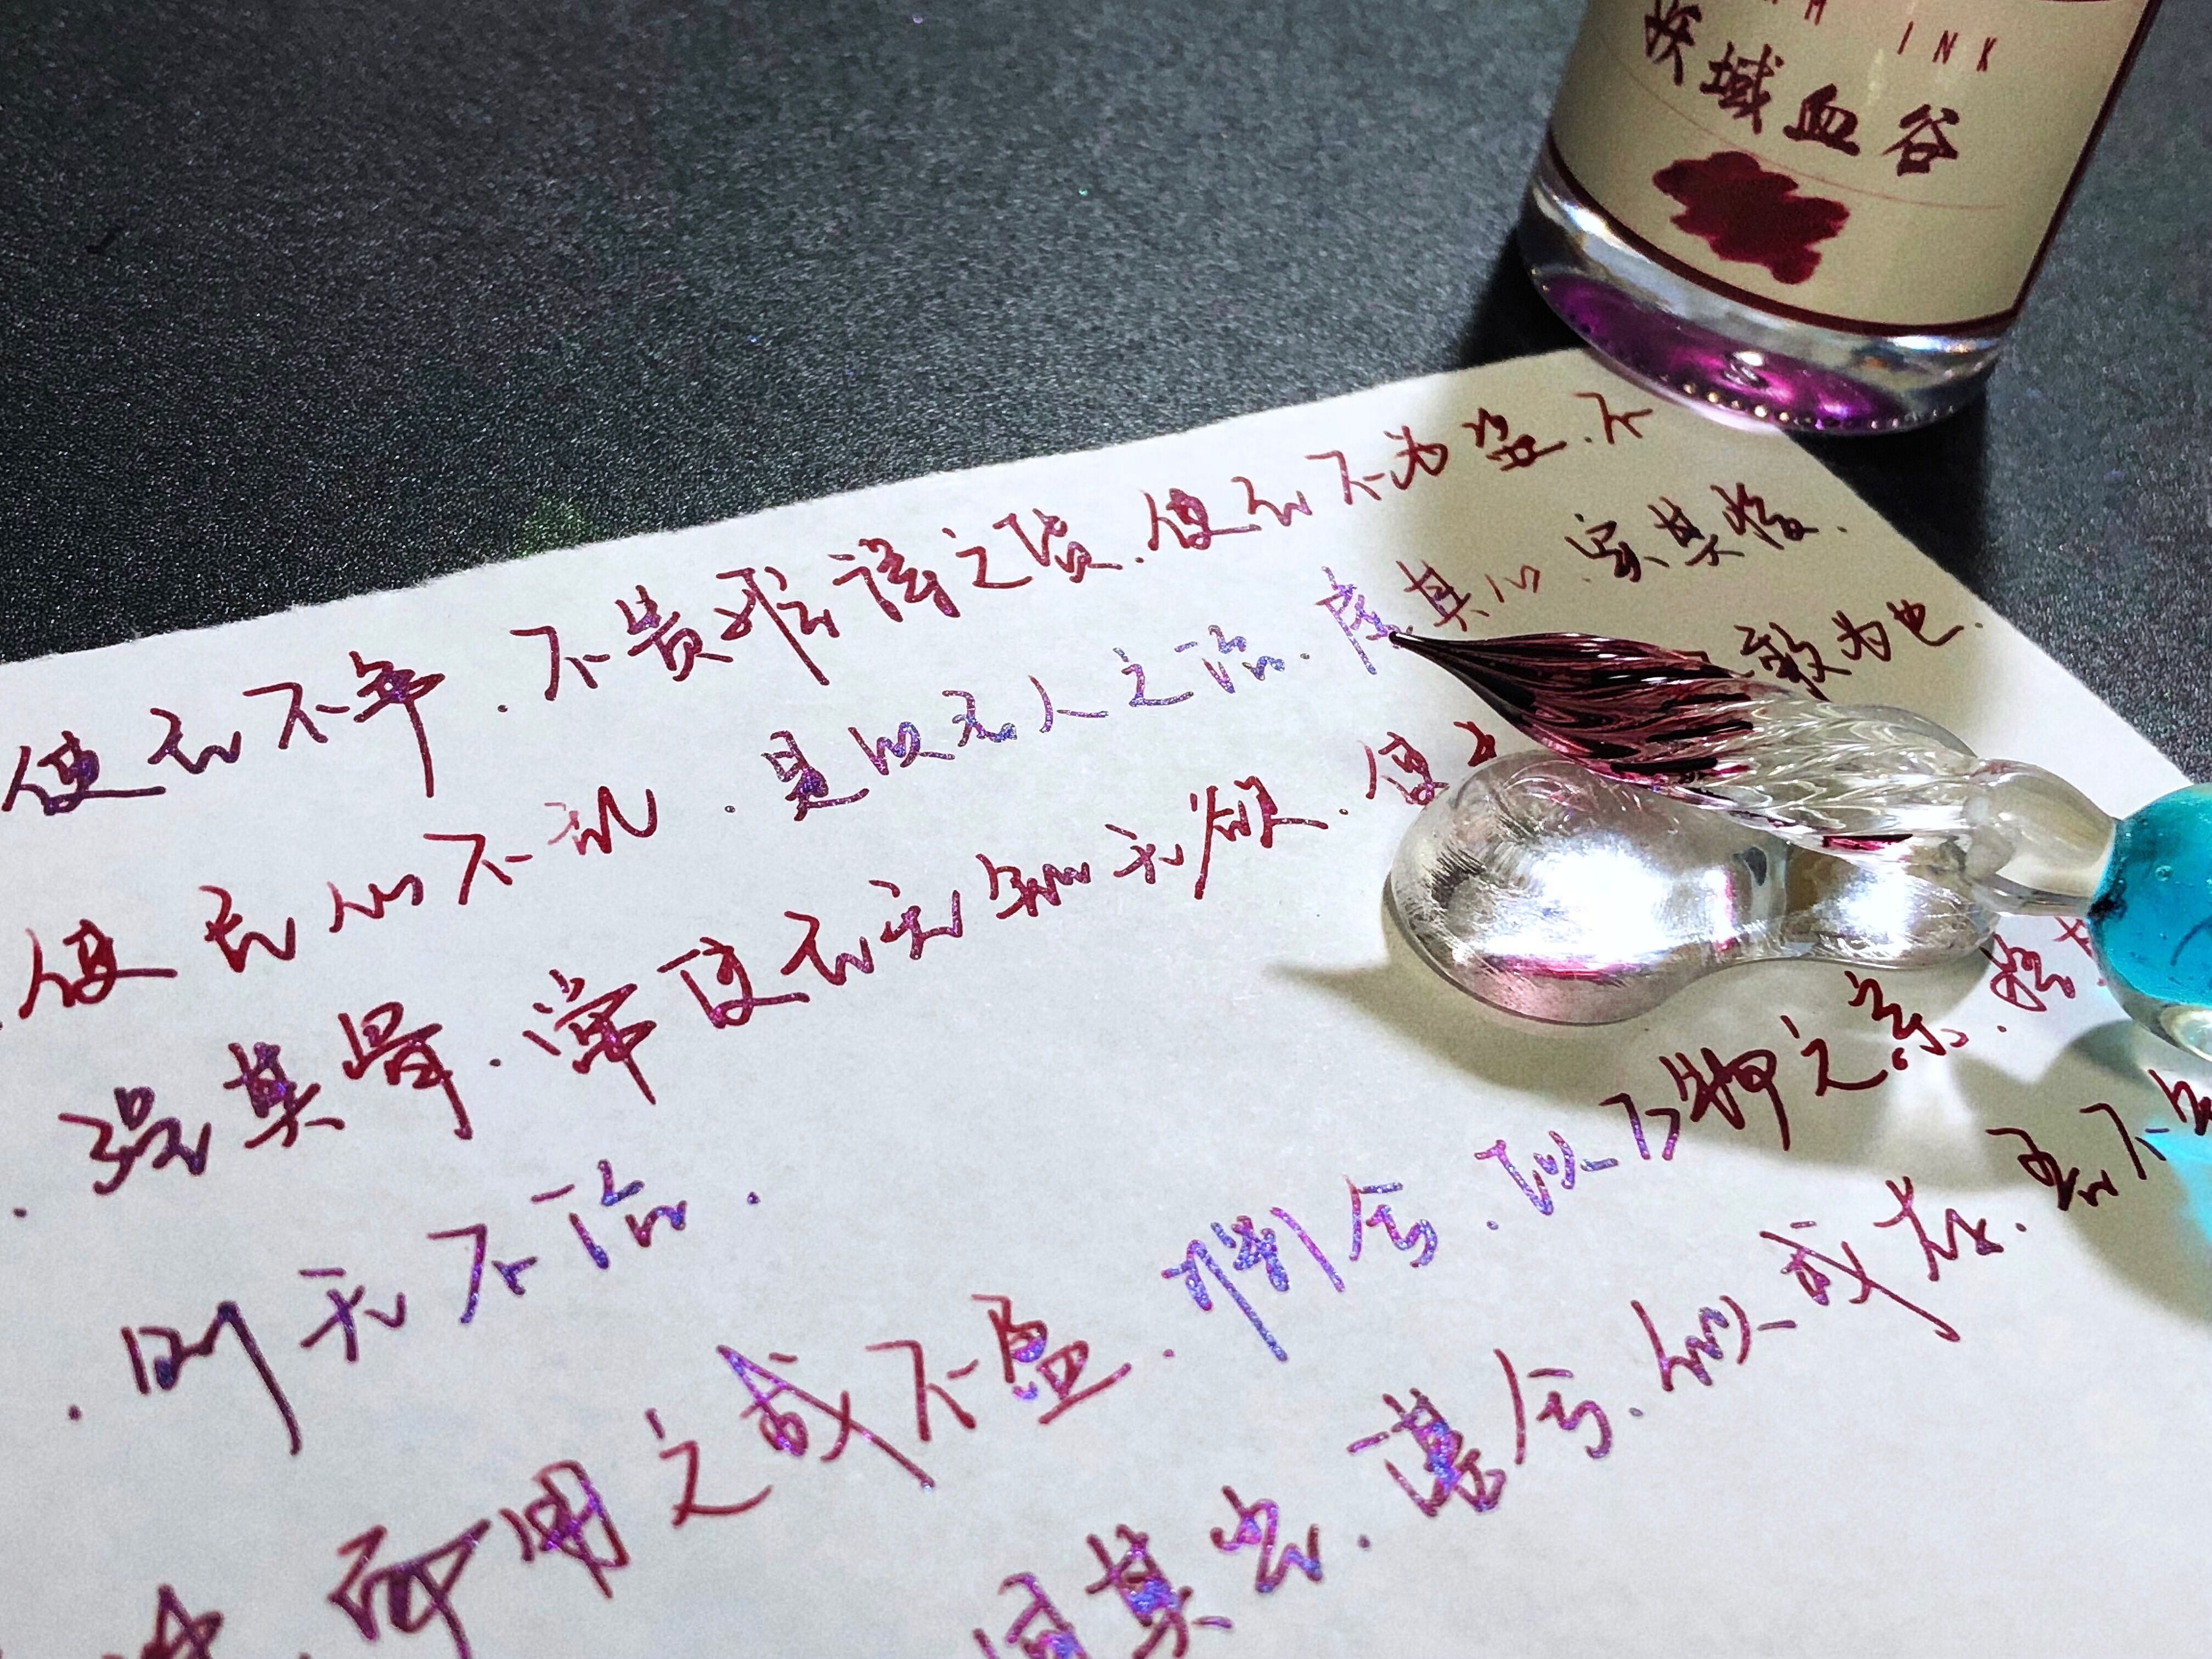 INK
域血谷
使民不争.不贵难得之货.使民不为盗.不
.使民心不乱.是以圣人之治.虚其心.实其腹.
.强其骨.常使民无知无欲.使 敢为也.
.则无不治.
冲.而用之或不盈.渊兮.似万物之宗.挫
同其尘.湛兮.似或存.吾不